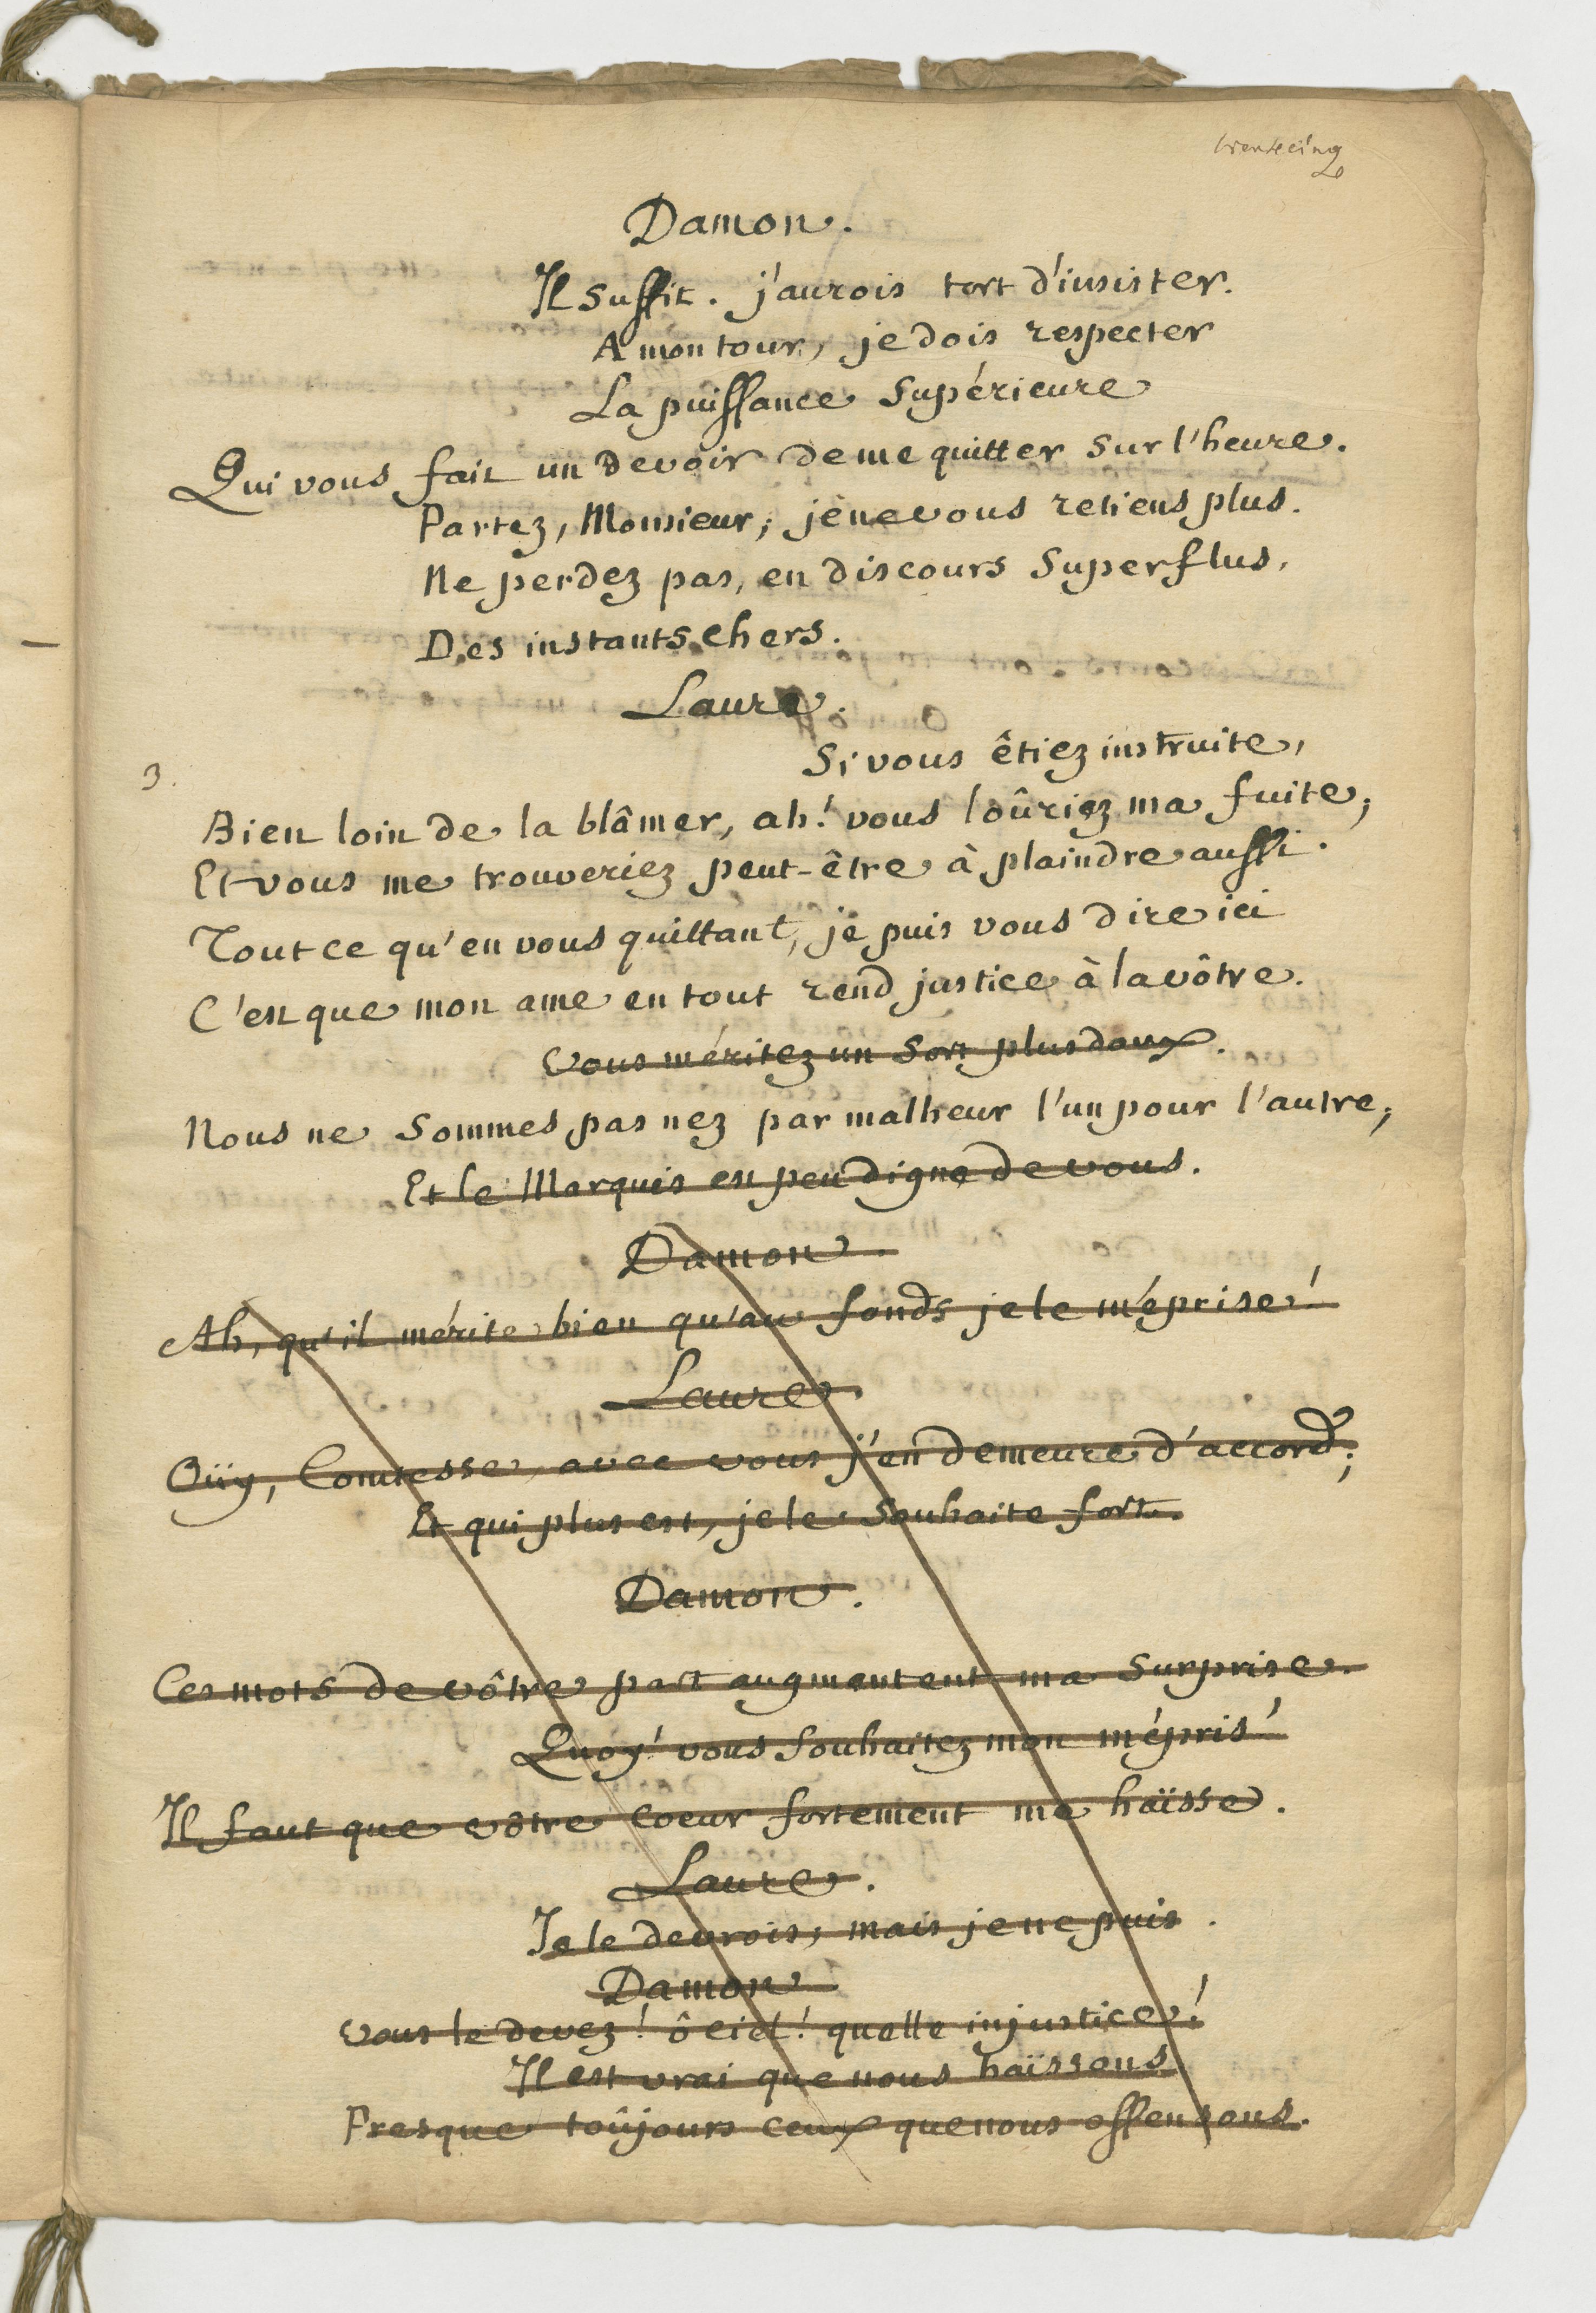 trentecinq
Damon.
Il suffit. j'aurois tort d'insister.
A mon tour, je dois respecter
La puissance Supérieure
Qui vous fait un devoir de me quitter sur l'heure.
Partez, Monsieur, je ne vous retiens plus.
Ne perdez pas, en discours superflus,
Des instants chers.
Laure.
Si vous êtiez instruite,
3.
Bien loin de la blâmer, ah! vous loûriez ma fuite;
Et vous me trouveriez peut-être à plaindre aussi.
Tout ce qu'en vous quittant, je puis vous dire ici
C'est que mon ame en tout rend justice à la vôtre.
Vous méritez un sort plus doux.
Nous ne sommes pas nez par malheur l'un pour l'autre;
Et le Marquis est peu digne de vous.
Damon.
Ah, qu'il mérite bien qu'au fonds je le méprise!
Laure.
Oüy, Comtesse, avec vous j'en demeure d'accord;
Et qui plus est, je le souhaite fort.
Damon.
Ces mots de vôtre part augmentent ma surprise.
Quoy! vous souhaitez mon mépris!
Il faut que vôtre coeur fortement me haïsse.
Laure.
Je le devrois, mais je ne puis.
Damon
Vous le devez! ô ciel! quelle injustice!
Il est vrai que nous haïssons
Presque toûjours ceux que nous offensons.